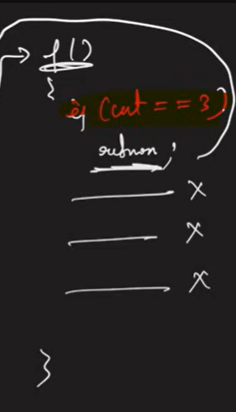 f()
{
if (cnt == 3)
return;
x
x
x
}